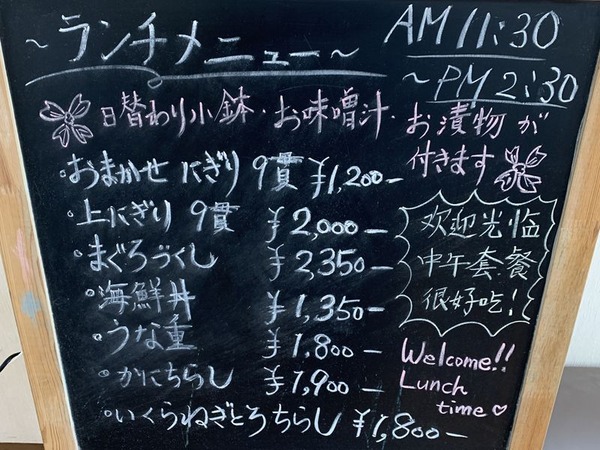 ~ランチメニュー~
AM 11:30
~PM 2:30
日替わり小鉢・お味噌汁・お漬物が
付きます
・おまかせにぎり 9貫 ¥1,200-
・上にぎり 9貫 ¥2,000-
・まぐろづくし ¥2,350-
・海鮮丼 ¥1,350-
・うな重 ¥1,800-
・かにちらし ¥1,900-
・いくらねぎとろちらし ¥1,800-
欢迎光临
中午套餐
很好吃!
Welcome!!
Lunch
time♡